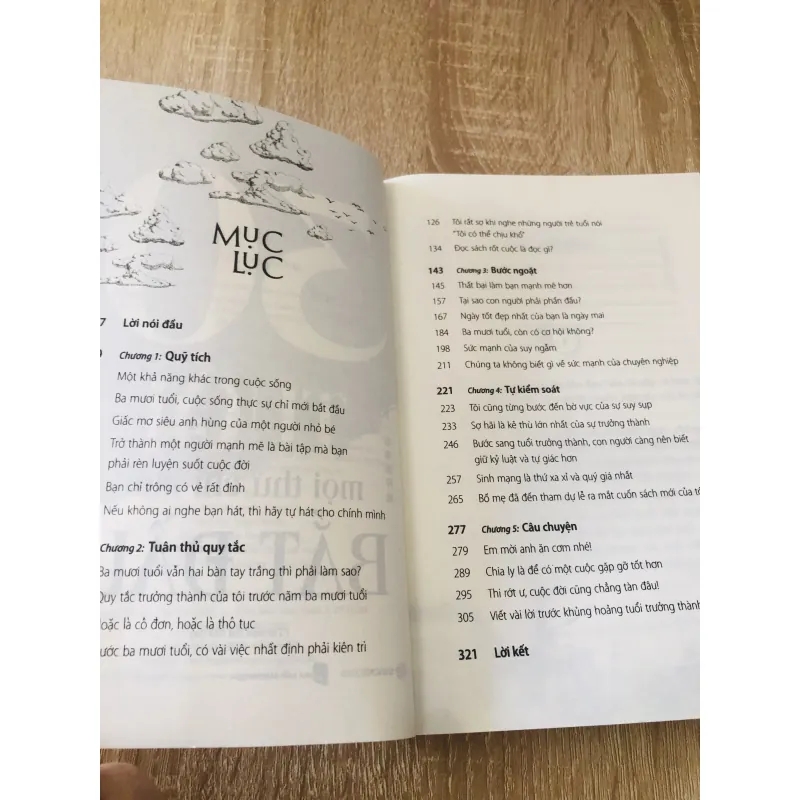 MỤC
LỤC
7 Lời nói đầu
Chương 1: Quỹ tích
Một khả năng khác trong cuộc sống
Ba mươi tuổi, cuộc sống thực sự chỉ mới bắt đầu
Giấc mơ siêu anh hùng của một người nhỏ bé
Trở thành một người mạnh mẽ là bài tập mà bạn
phải rèn luyện suốt cuộc đời
Bạn chỉ trông có vẻ rất đỉnh
Nếu không ai nghe bạn hát, thì hãy tự hát cho chính mình
Chương 2: Tuân thủ quy tắc
Ba mươi tuổi vẫn hai bàn tay trắng thì phải làm sao?
Quy tắc trưởng thành của tôi trước năm ba mươi tuổi
Hoặc là cô đơn, hoặc là thô tục
ước ba mươi tuổi, có vài việc nhất định phải kiên trì
126 Tôi rất sợ khi nghe những người trẻ tuổi nói
"Tôi có thể chịu khổ"
134 Đọc sách rốt cuộc là đọc gì?
143 Chương 3: Bước ngoặt
145 Thất bại làm bạn mạnh mẽ hơn
157 Tại sao con người phải phấn đấu?
167 Ngày tốt đẹp nhất của bạn là ngày mai
184 Ba mươi tuổi, còn có cơ hội không?
198 Sức mạnh của suy ngẫm
211 Chúng ta không biết gì về sức mạnh của chuyên nghiệp
221 Chương 4: Tự kiểm soát
223 Tôi cũng từng bước đến bờ vực của sự suy sụp
233 Sợ hãi là kẻ thù lớn nhất của sự trưởng thành
246 Bước sang tuổi trưởng thành, con người càng nên biết
giữ kỷ luật và tự giác hơn
257 Sinh mạng là thứ xa xỉ và quý giá nhất
265 Bố mẹ đã đến tham dự lễ ra mắt cuốn sách mới của tô
277 Chương 5: Câu chuyện
279 Em mời anh ăn cơm nhé!
289 Chia ly là để có một cuộc gặp gỡ tốt hơn
295 Thi rớt ư, cuộc đời cũng chẳng tàn đâu!
305 Viết vài lời trước khủng hoảng tuổi trưởng thành
321 Lời kết
mọi thứ